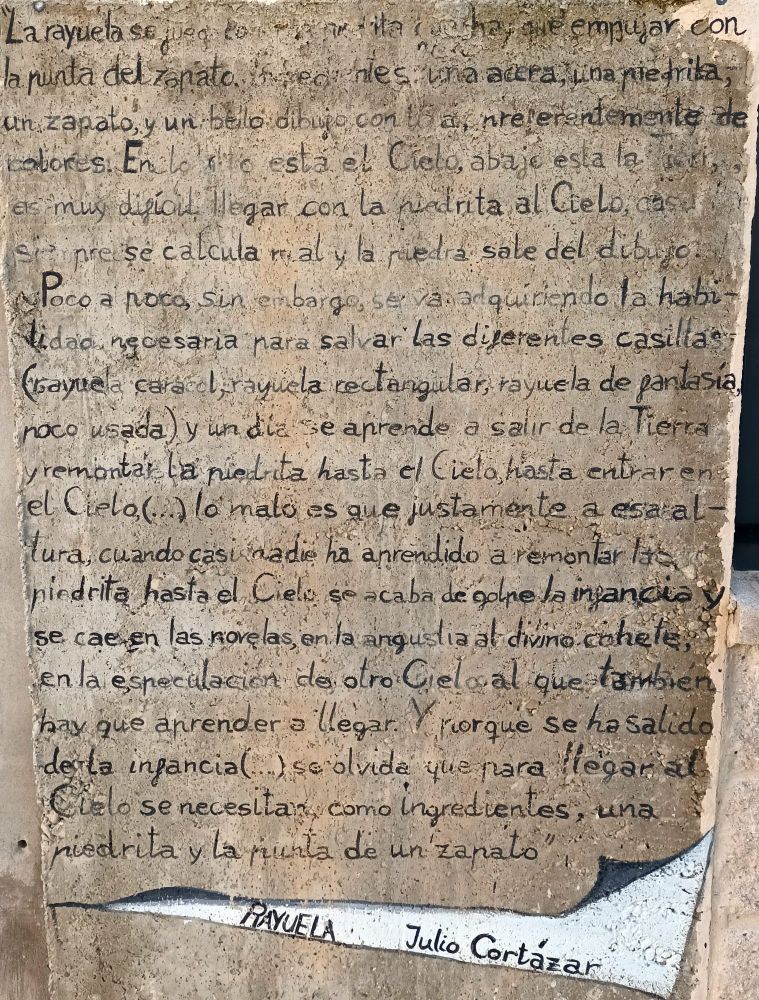 "La rayuela se juega con una piedrita que hay que empujar con
la punta del zapato. Ingredientes: una acera, una piedrita,
un zapato, y un bello dibujo con tiza, preferentemente de
colores. En lo alto esta el Cielo, abajo esta la Tierra,
es muy difícil llegar con la piedrita al Cielo, casi
siempre se calcula mal y la piedra sale del dibujo.
Poco a poco, sin embargo, se va adquiriendo la habi-
lidad necesaria para salvar las diferentes casillas
(rayuela caracol, rayuela rectangular, rayuela de fantasía,
poco usada) y un día se aprende a salir de la Tierra
y remontar la piedrita hasta el Cielo, hasta entrar en
el Cielo,(...) lo malo es que justamente a esa al-
tura, cuando casi nadie ha aprendido a remontar la
piedrita hasta el Cielo se acaba de golpe la infancia y
se cae en las novelas, en la angustia al divino cohete,
en la especulación de otro Cielo al que también
hay que aprender a llegar. Y porque se ha salido
de la infancia(...) se olvida que para llegar al
Cielo se necesitan, como ingredientes, una
piedrita y la punta de un zapato"
RAYUELA Julio Cortázar